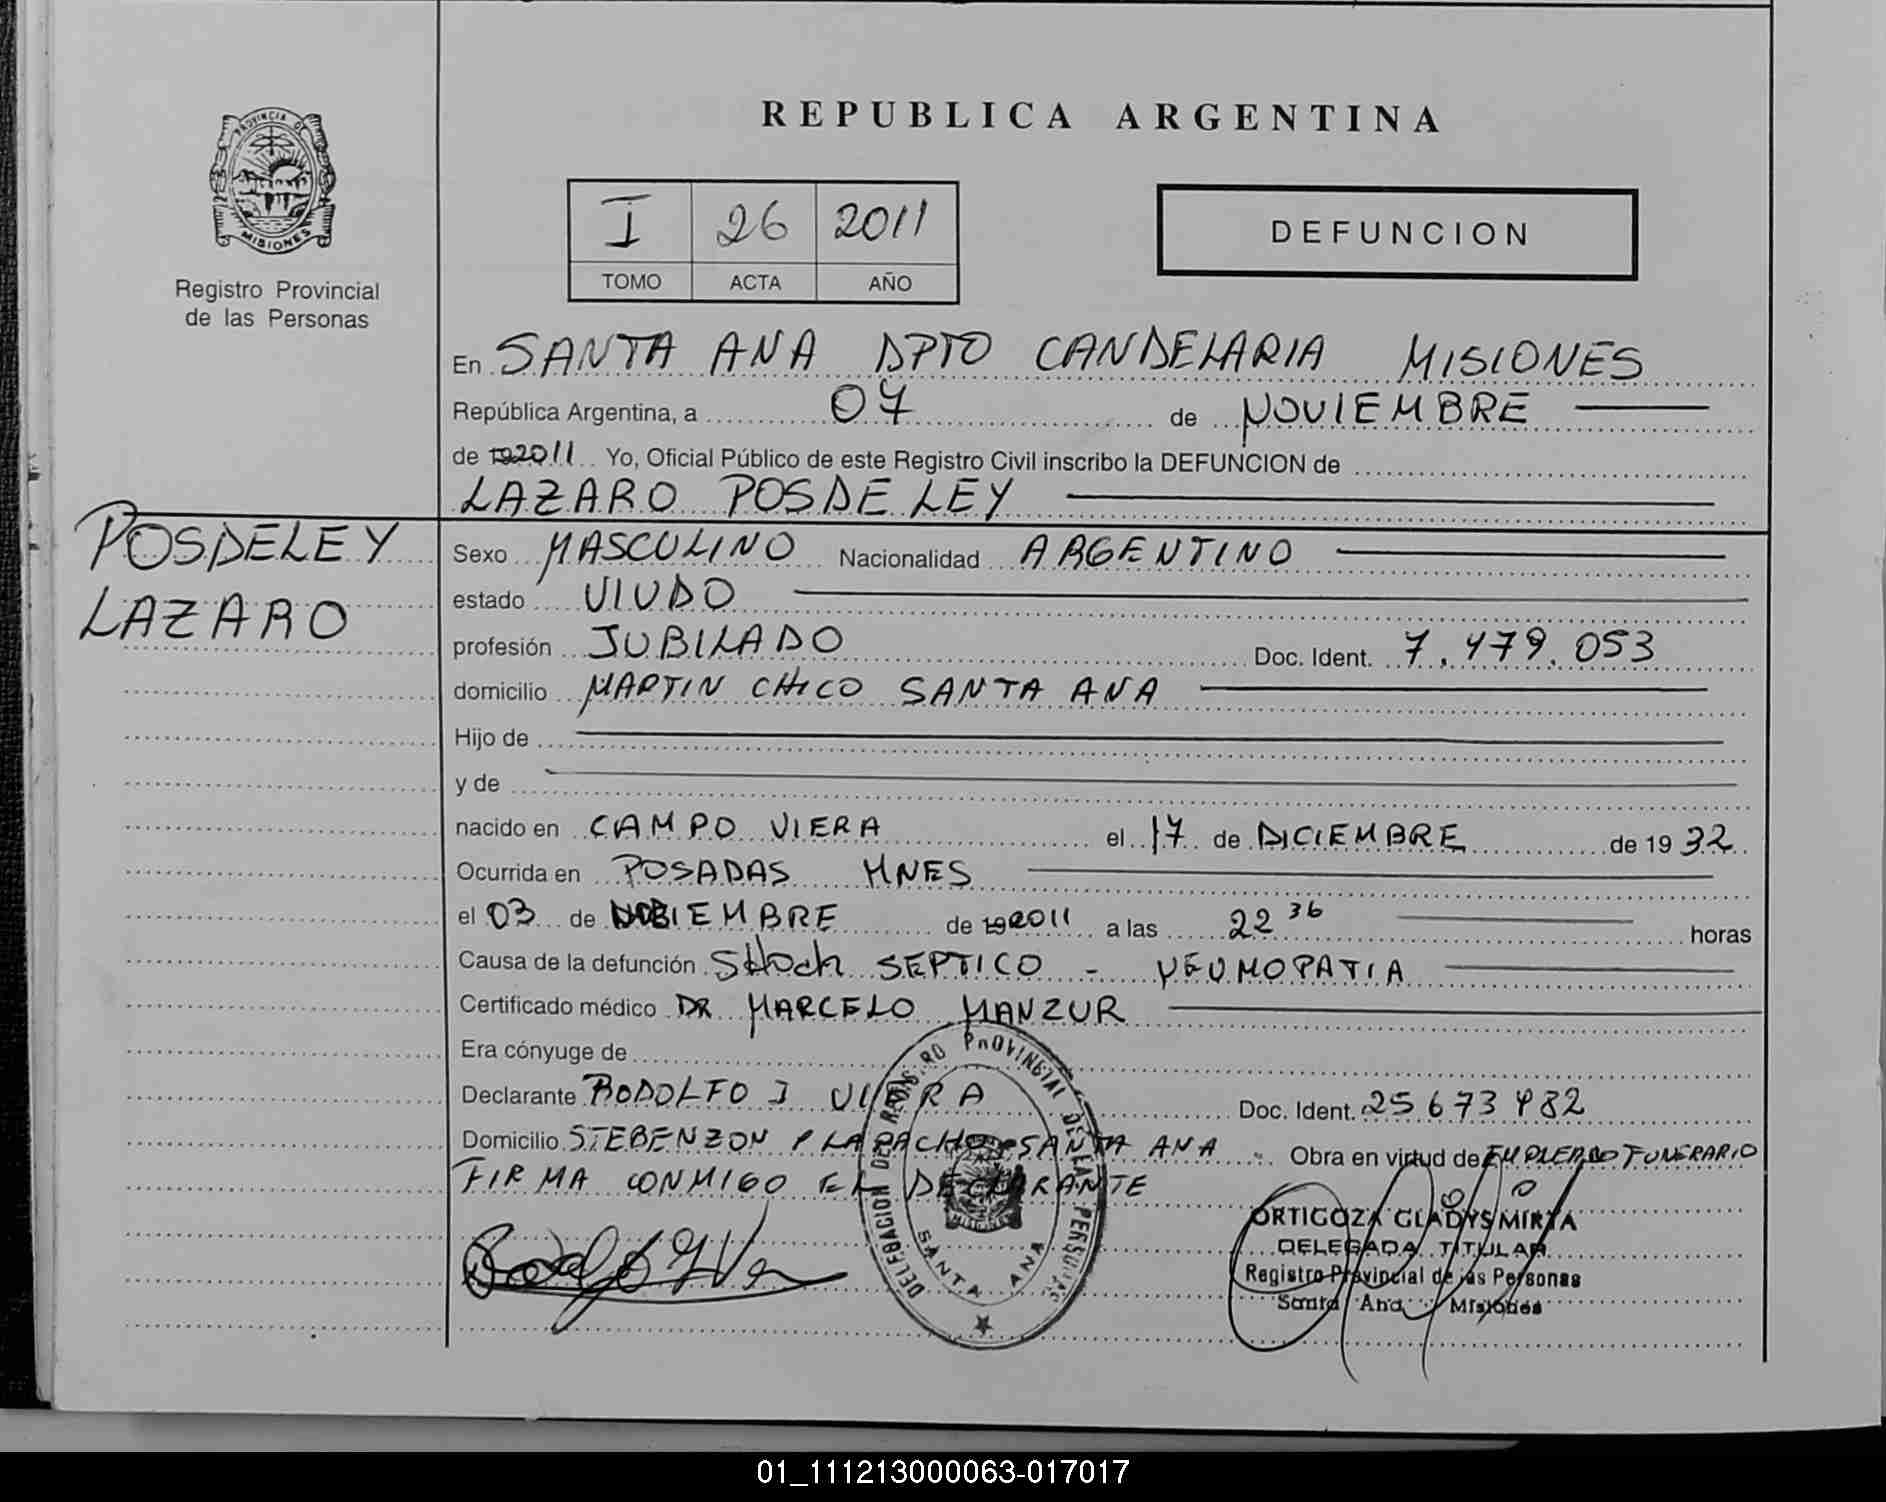 PROVINCIA DE
MISIONES
Registro Provincial
de las Personas
REPUBLICA ARGENTINA
I 26 2011
TOMO ACTA AÑO
DEFUNCION
En SANTA ANA DPTO CANDELARIA MISIONES
República Argentina, a 07 de NOVIEMBRE
de 2011 Yo, Oficial Público de este Registro Civil inscribo la DEFUNCION de
LAZARO POSDELEY
POSDELEY
LAZARO
Sexo MASCULINO Nacionalidad ARGENTINO
estado VIUDO
profesión JUBILADO Doc. Ident. 7.479.053
domicilio MARTIN CHICO SANTA ANA
Hijo de
y de
nacido en CAMPO VIERA el 17 de DICIEMBRE de 1932
Ocurrida en POSADAS MNES
el 03 de NOVIEMBRE de 2011 a las 22 36 horas
Causa de la defunción SHock SEPTICO - NEUMOPATIA
Certificado médico DR MARCELO MANZUR
Era cónyuge de
Declarante RODOLFO J VIERA Doc. Ident. 25 673 482
Domicilio STEBENZON Y LAPACHO SANTA ANA Obra en virtud de EMPLEADO FUNERARIO
FIRMA CONMIGO EL DECLARANTE
DELEGACION DE REGISTRO PROVINCIAL DE LAS PERSONAS
SANTA ANA
ORTIGOZA GLADYS MIRTA
DELEGADA TITULAR
Registro Provincial de las Personas
Santa Ana Misiones
01_111213000063-017017